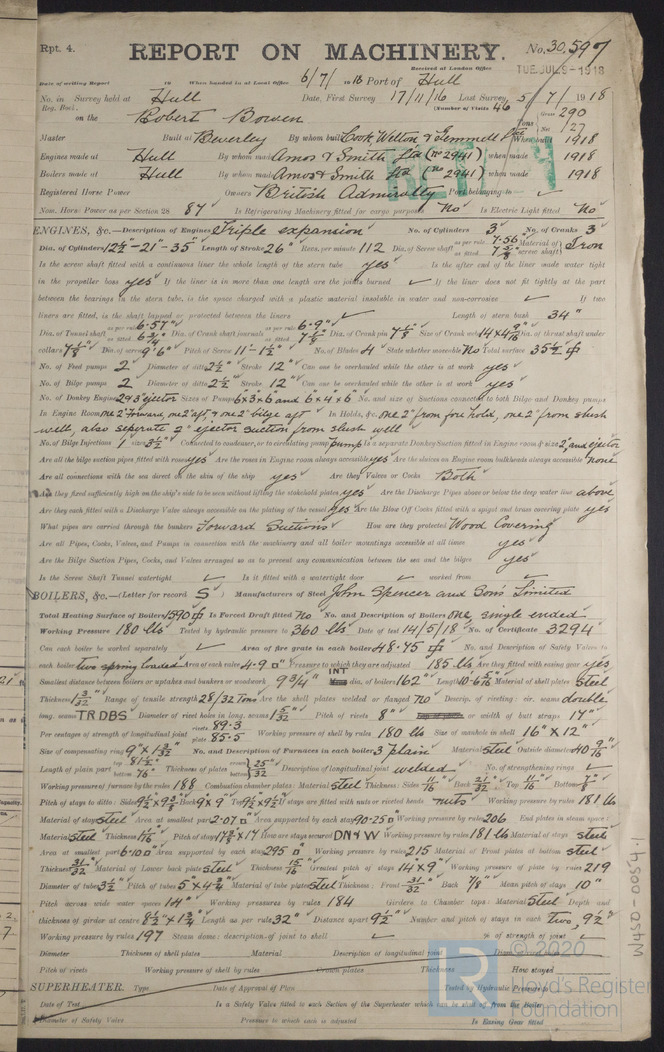 Rpt. 4.
REPORT ON MACHINERY.
No. 30,597
Received at London Office
TUE. JUL. 9-1918
Date of writing Report 19 When handed in at Local Office 6/7/1918 Port of Hull
No. in Survey held at Hull Date, First Survey 17/11/16 Last Survey 5/7/1918
Reg. Book. (Number of Visits 46
on the Robert Bowen Tons Gross 290 Net 127
Master Built at Beverley By whom built Cook Welton & Gemmell When built 1918
Engines made at Hull By whom made Amos & Smith Ltd (No 2941) when made 1918
Boilers made at Hull By whom made Amos & Smith Ltd (No 2941) when made 1918
Registered Horse Power Owners British Admiralty Port belonging to
Nom. Horse Power as per Section 28 87 Is Refrigerating Machinery fitted for cargo purposes No Is Electric Light fitted No
ENGINES, &c.—Description of Engines Triple expansion No. of Cylinders 3 No. of Cranks 3
Dia. of Cylinders 12½-21-35 Length of Stroke 26" Revs. per minute 112 Dia. of Screw shaft as per rule 7.56 Material of screw shaft Iron
Is the screw shaft fitted with a continuous liner the whole length of the stern tube yes Is the after end of the liner made water tight
in the propeller boss yes If the liner is in more than one length are the joints burned If the liner does not fit tightly at the part
between the bearings in the stern tube, is the space charged with a plastic material insoluble in water and non-corrosive If two
liners are fitted, is the shaft lapped or protected between the liners Length of stern bush 34"
Dia. of Tunnel shaft as per rule 6.57" as fitted 6¾ Dia. of Crank shaft journals as per rule 6.9" as fitted 7⅛ Dia. of Crank pin 7⅛ Size of Crank webs 14x4 9/16 Dia. of thrust shaft under
collars 7⅛ Dia. of screw 9'6" Pitch of Screw 11'-1½" No. of Blades 4 State whether moveable No Total surface 35½
No. of Feed pumps 2 Diameter of ditto 2½ Stroke 12" Can one be overhauled while the other is at work yes
No. of Bilge pumps 2 Diameter of ditto 2½ Stroke 12" Can one be overhauled while the other is at work yes
No. of Donkey Engines 2 & 3" ejector Sizes of Pumps 6x3x6 and 6x4x6 No. and size of Suctions connected to both Bilge and Donkey pumps
In Engine Room one 2" forward, one 2" aft, & one 2" bilge aft In Holds, &c. one 2" from fore hold, one 2" from slush
well, also seperate 2" ejector suction from slush well
No. of Bilge Injections 1 sizes 3½ Connected to condenser, or to circulating pump pump Is a separate Donkey Suction fitted in Engine room & size 2", and ejector
Are all the bilge suction pipes fitted with roses yes Are the roses in Engine room always accessible yes Are the sluices on Engine room bulkheads always accessible none
Are all connections with the sea direct on the skin of the ship yes Are they Valves or Cocks Both
Are they fixed sufficiently high on the ship's side to be seen without lifting the stokehold plates yes Are the Discharge Pipes above or below the deep water line above
Are they each fitted with a Discharge Valve always accessible on the plating of the vessel yes Are the Blow Off Cocks fitted with a spigot and brass covering plate yes
What pipes are carried through the bunkers Forward Suctions How are they protected Wood Covering
Are all Pipes, Cocks, Valves, and Pumps in connection with the machinery and all boiler mountings accessible at all times yes
Are the Bilge Suction Pipes, Cocks, and Valves arranged so as to prevent any communication between the sea and the bilges yes
Is the Screw Shaft Tunnel watertight Is it fitted with a watertight door worked from
BOILERS, &c.—(Letter for record S Manufacturers of Steel John Spencer and Sons Limited
Total Heating Surface of Boilers 1590 Is Forced Draft fitted No No. and Description of Boilers One, single ended
Working Pressure 180 lbs Tested by hydraulic pressure to 360 lbs Date of test 14/5/18 No. of Certificate 3294
Can each boiler be worked separately Area of fire grate in each boiler 48.75 No. and Description of Safety Valves to
each boiler two spring loaded Area of each valve 4.9 Pressure to which they are adjusted 185 lbs Are they fitted with easing gear yes
Smallest distance between boilers or uptakes and bunkers or woodwork 9¾" INT dia. of boilers 162" Length 10-6 Material of shell plates Steel
Thickness 1 3/32 Range of tensile strength 28/32 Tons Are the shell plates welded or flanged No Descrip. of riveting: cir. seams double
long. seams TRDBS Diameter of rivet holes in long. seams 1 5/32 Pitch of rivets 8" or width of butt straps 17"
Per centages of strength of longitudinal joint rivets 89.3 plate 85.5 Working pressure of shell by rules 180 lbs Size of manhole in shell 16" x 12"
Size of compensating ring 9" x 1 3/32 No. and Description of Furnaces in each boiler 3 plain Material Steel Outside diameter 40 9/16
Length of plain part top 81½" bottom 76" Thickness of plates crown bottom 25/32 Description of longitudinal joint welded No. of strengthening rings
Working pressure of furnace by the rules 188 Combustion chamber plates: Material Steel Thickness: Sides 11/16 Back 21/32 Top 11/16 Bottom 7/8
Pitch of stays to ditto: Sides 9½ x 9¾ Back 9 x 9 Top 9½ x 9½ If stays are fitted with nuts or riveted heads nuts Working pressure by rules 181 lbs
Material of stays Steel Area at smallest part 2.07 Area supported by each stay 90.25 Working pressure by rules 206 End plates in steam space:
Material Steel Thickness 1 1/16 Pitch of stays 17⅜ x 17 How are stays secured DN&W Working pressure by rules 181 lbs Material of stays Steel
Area at smallest part 6.10 Area supported by each stay 295 Working pressure by rules 215 Material of Front plates at bottom steel
Thickness 31/32 Material of Lower back plate Steel Thickness 15/16 Greatest pitch of stays 14" x 9" Working pressure of plate by rules 219
Diameter of tubes 3½ Pitch of tubes 5" x 4¾ Material of tube plates Steel Thickness: Front 31/32 Back 7/8 Mean pitch of stays 10"
Pitch across wide water spaces 14" Working pressures by rules 184 Girders to Chamber tops: Material Steel Depth and
thickness of girder at centre 8½" x 1¾ Length as per rule 32" Distance apart 9½" Number and pitch of stays in each two, 9½"
Working pressure by rules 197 Steam dome: description of joint to shell % of strength of joint
Diameter Thickness of shell plates Material Description of longitudinal joint
Pitch of rivets Working pressure of shell by rules Crown plates Thickness How stayed
SUPERHEATER. Type Date of Approval of Plan Tested by Hydraulic Pressure to
Date of Test Is a Safety Valve fitted to each Section of the Superheater which can be shut off from the Boiler
Diameter of Safety Valve Pressure to which each is adjusted Is Easing Gear fitted
W450-0054.1
LR
© 2020
Lloyd's Register
Foundation